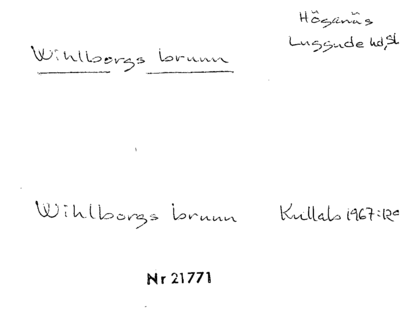 Höganäs
Luggude hd, Sk
Wihlborgs brunn
Wihlborgs brunn Kullab 1967:12
Nr 21771